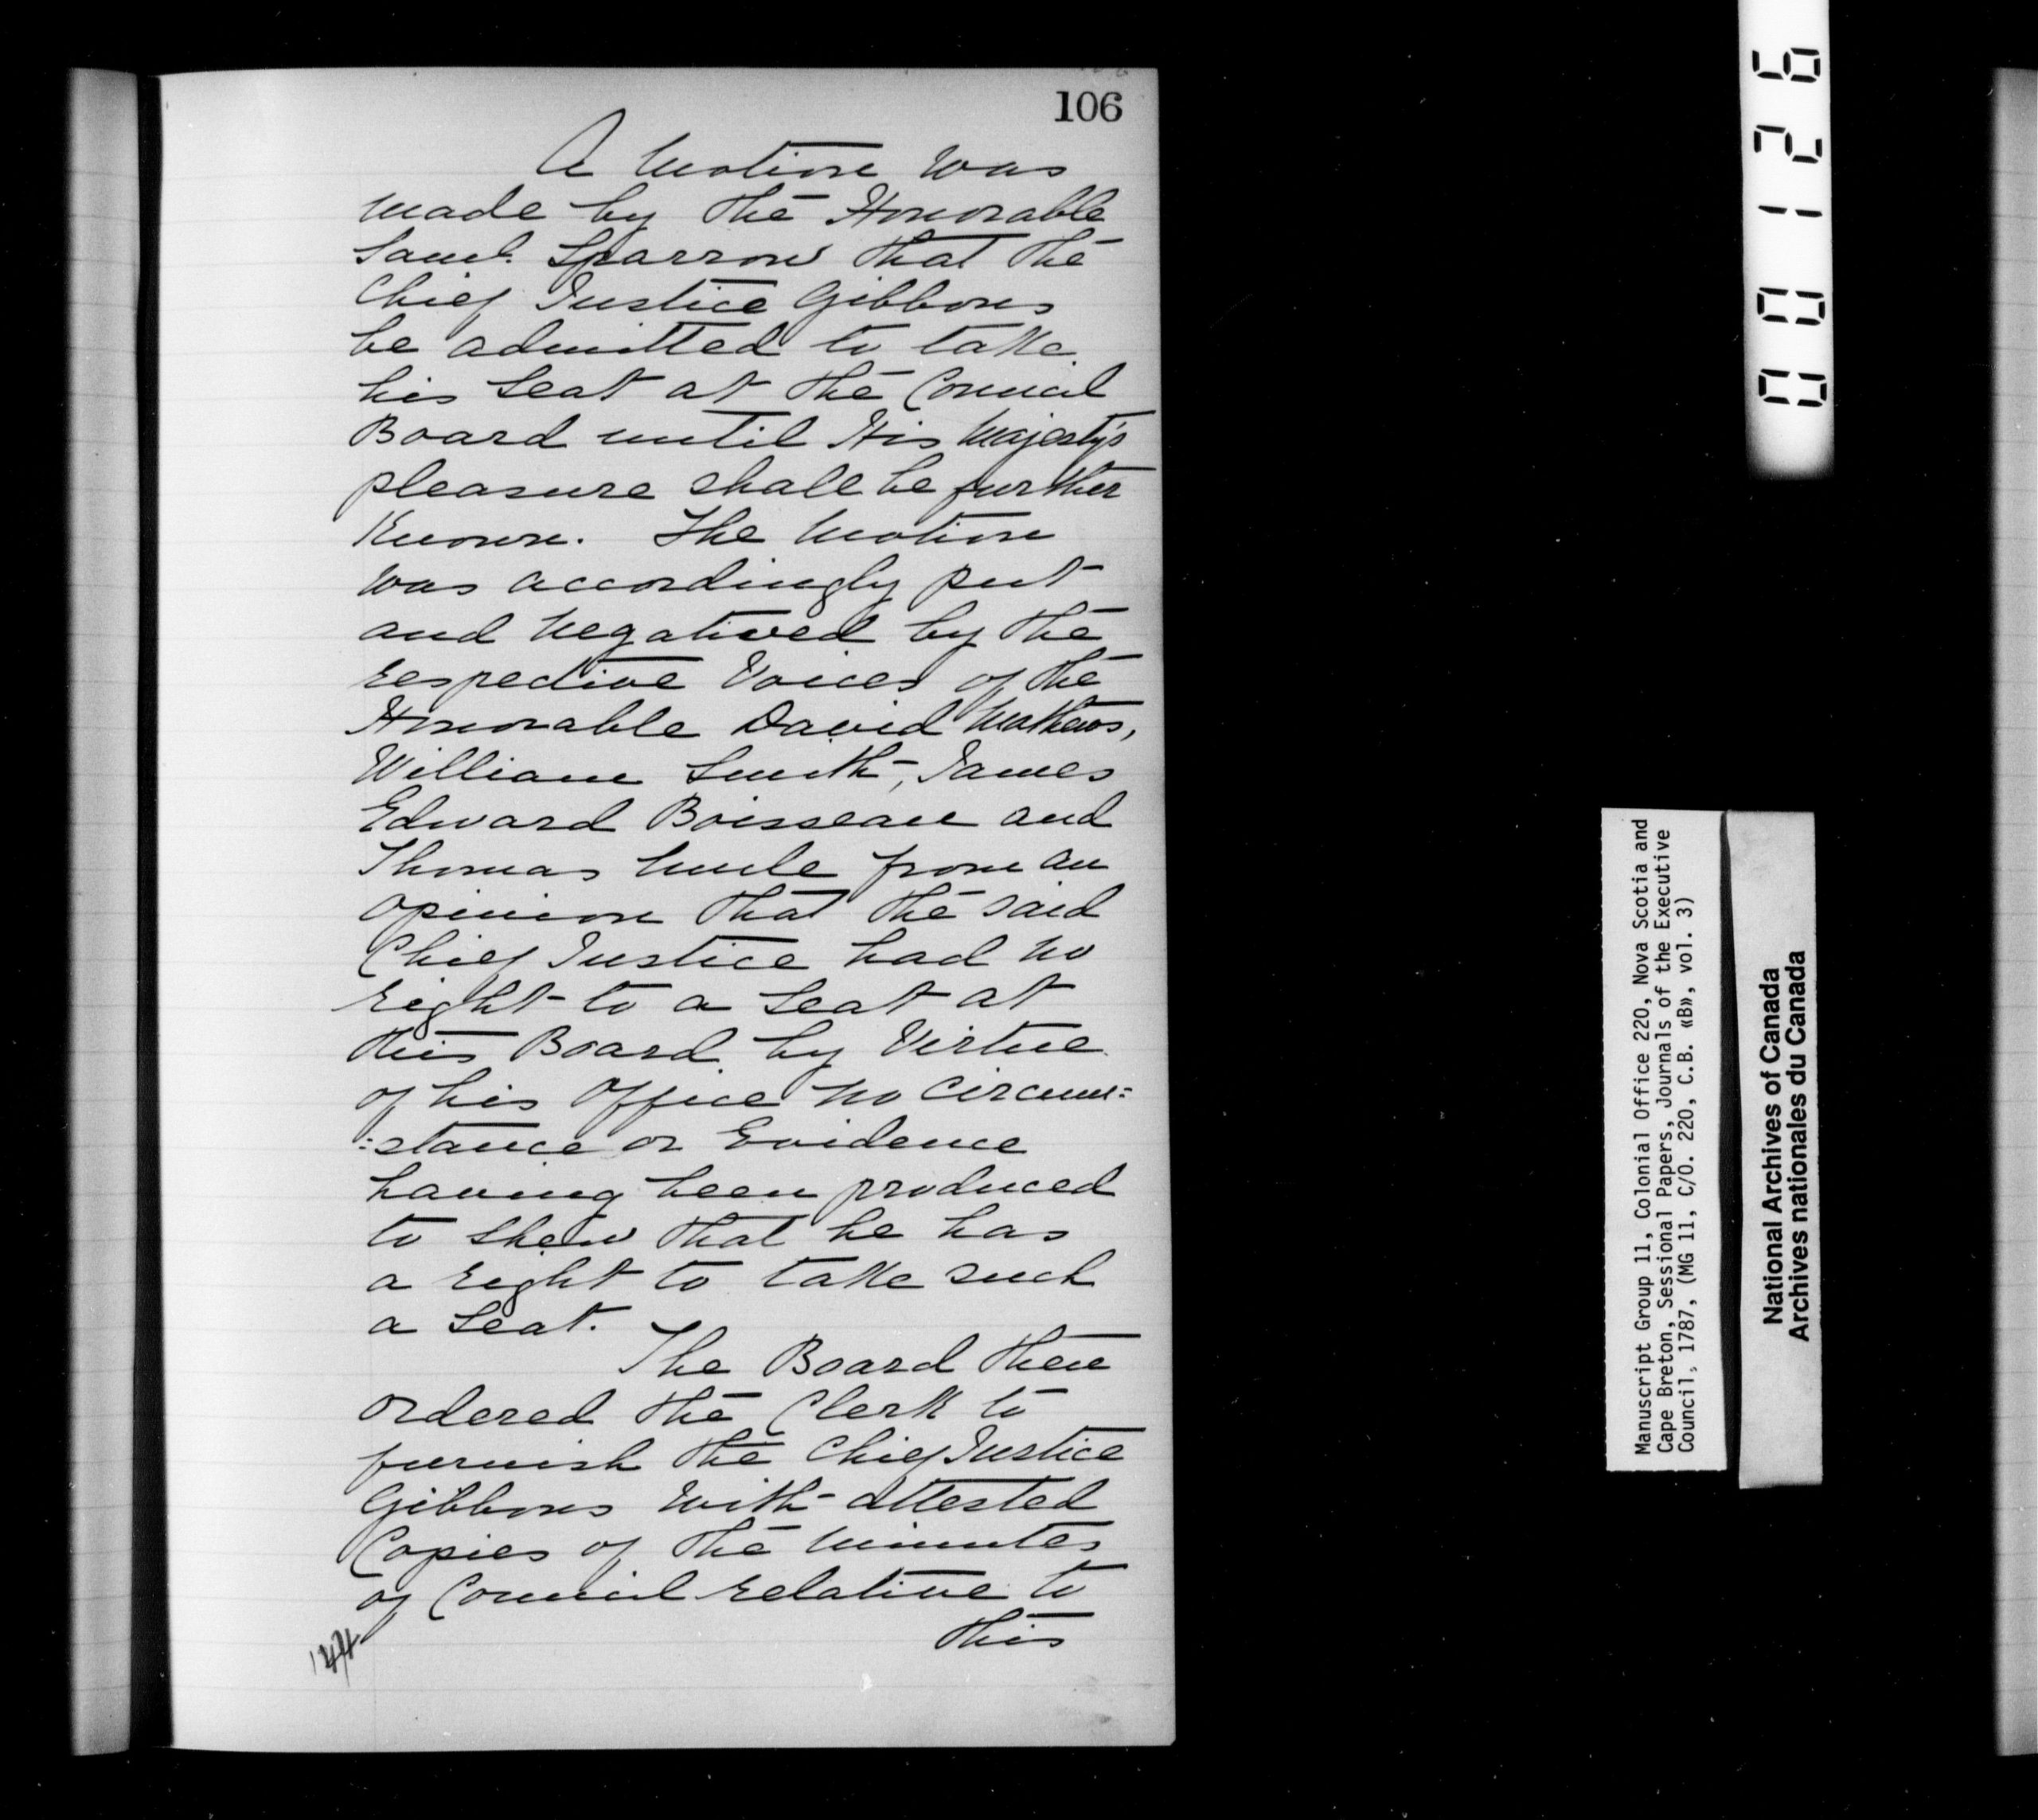 106
A Motion was
made by the Honorable
Saml. Sparrow that the
Chief Justice Gibbons
be admitted to take
his Seat at the Council
Board until His Majesty's
pleasure shall be further
Known. The Motion
was accordingly put
and Negatived by the
respective Voices of the
Honorable David Mathews,
William Smith, James
Edward Boisseau and
Thomas Uncle from an
opinion that the said
Chief Justice had no
right to a Seat at
this Board by Virtue
of his Office no Circum=
=stance or Evidence
having been produced
to Shew that he has
a right to take such
a Seat.
The Board then
Ordered the Clerk to
furnish the Chief Justice
Gibbons with attested
Copies of the Minutes
of Council relative to
this
144
001126
Manuscript Group 11, Colonial Office 220, Nova Scotia and
Cape Breton, Sessional Papers, Journals of the Executive
Council, 1787, (MG 11, C/O. 220, C.B. «B», vol. 3)
National Archives of Canada
Archives nationales du Canada